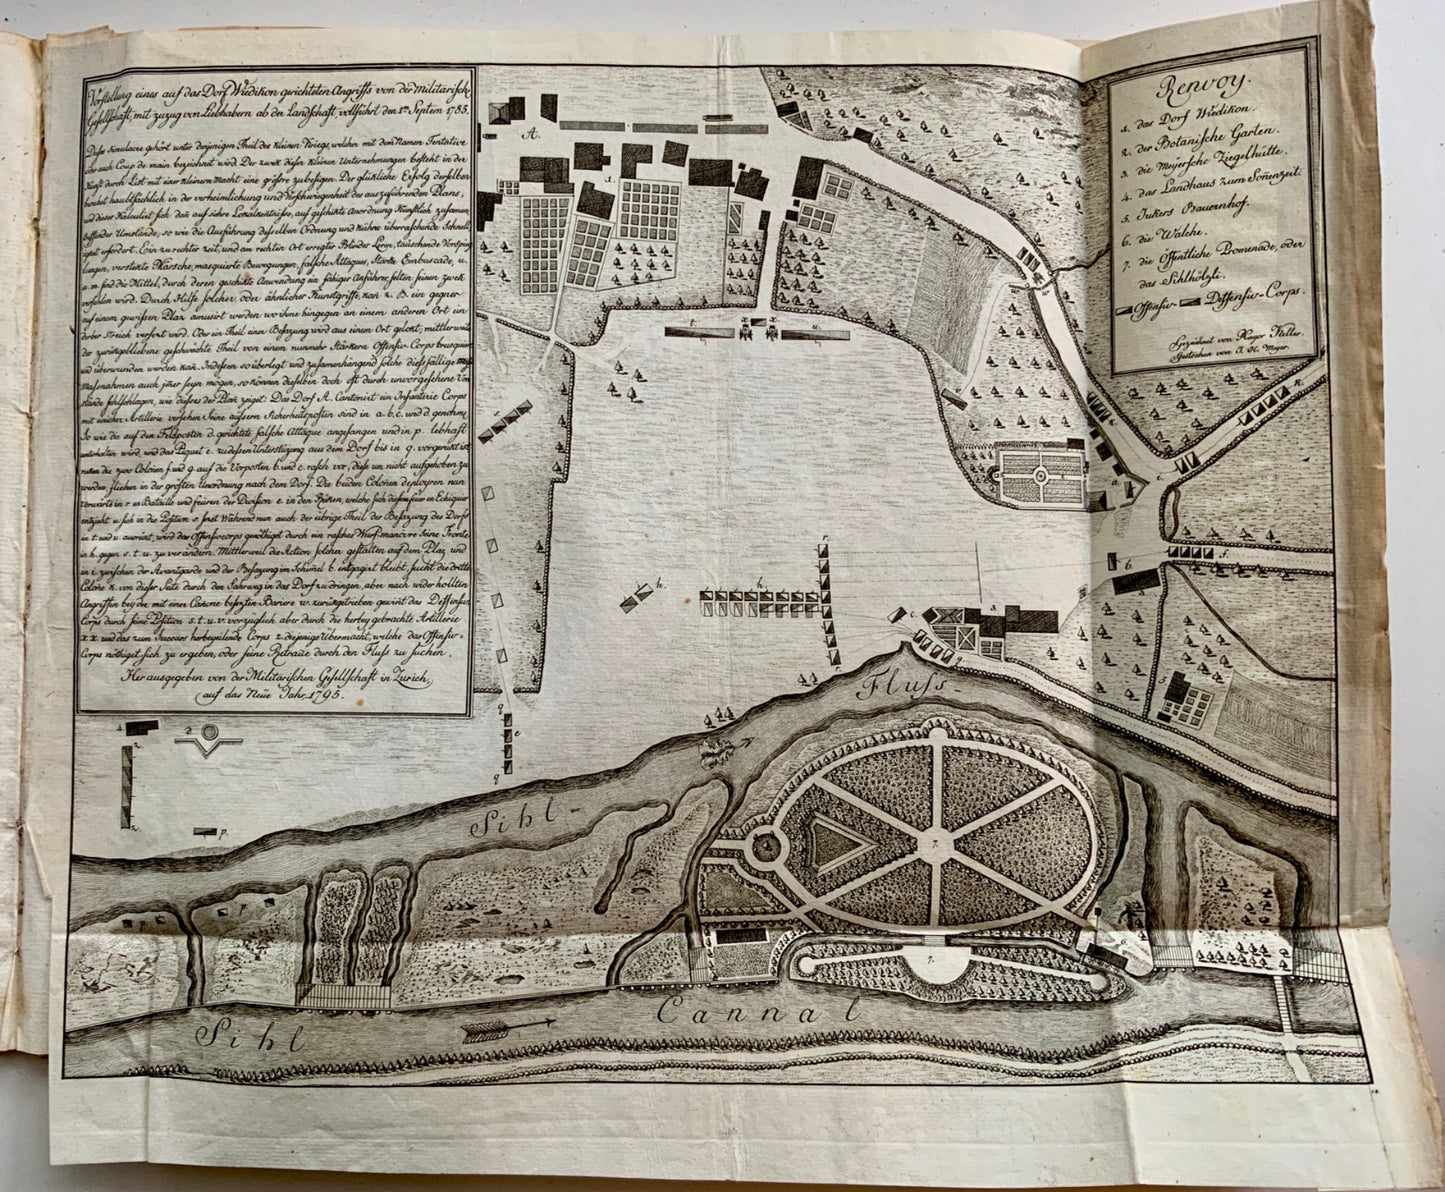 Vorstellung eines auf das Dorf Wiedikon gerichteten Angriffs von der Militarisch:
Gesellschaft, mit zuzug von Liebhabern ab der Landschaft, vollführt den 1ten Septem 1785.
Diese Simulacre gehört unter denjenigen Theil des Kleinen Kriegs, welcher mit dem Namen Tentative
oder auch Coup de main bezeichnet wird. Der zwek dieser kleinen Unternehmungen besteht in der
Kunst durch List mit einer kleinern Macht eine größre zubesiegen. Der glükliche Erfolg derselben
beruhet hauptsächlich in der verheimlichung und Verschwiegenheit des auszuführenden Plans,
und dieser Kalculiert sich dan auf sichre Lokalkentnisse, auf geschikte Anordnung Künstlich zusamen
treffender Umstände, so wie die Ausführung desselben Ordnung und Kühne überraschende Schnell
igkeit erfordert. Ein zu rechter zeit, und am rechten Ort erregter Blinder Lerm, täuschende Vorspieg
lungen, verstekte Märsche, masquierte Bewegungen, falsche Attaques, Starke Embuscade, u.
a. m. sind die Mittel, durch deren geschikte Anwendung ein fähiger Anführer selten seinen zwek
verfehlen wird. Durch Hilfe solcher oder ähnlicher Kunstgriffe kan z. B. ein gegner
auf einem gewissen Plaz amusirt werden wo ihme hingegen an einem anderen Ort ein
derber Streich versezt wird. Oder ein Theil einer Besazung wird aus einem Ort gelokt, mittlerweile
der zurükgebliebene geschwächte Theil von einem nunmehr Stärkern Offensiv-Corps brusquiert
und überwunden werden kan. Indessen so überlegt und zusamenhängend solche diessfällige
Massnahmen auch jmer seyn mögen, so können dieselben doch oft durch unvorgesehene Um
stände fehlschlagen, wie dieses der Plan zeiget: Das Dorf A. Cantonirt ein Infanterie Corps
mit einicher Artillerie versehen Seine äussern Sicherheitsposten sind in a. b. c. und d. genohmen
So wie die auf den Feldposten d. gerichtete falsche Attaque angefangen und in p. lebhaft
unterhalten wird, und das Piquet e. zu dessen Unterstüzung aus dem Dorf bis in q. vorgerükt ist
ruken die zwo Colonen f. und g. auf die Vorposten b. und c. rasch vor, diese um nicht aufgehoben zu
werden, fliehen in der grösten Unordnung nach dem Dorf. Die beiden Colonen deployren nun
vorwärts in r. en Bataille und feüren der Division e. in den Rüken, welche sich diesem feüer en Echiquier
entzieht u. sich in die Position s. sezt Während nun auch der übrige Theil der Besazung des Dorfs
in t. und u. ausrükt, wird das Offensivcorps genöthiget durch ein rasches Wurfmanövre seine Fronte
in h. gegen s. t. u. zu verändern. Mittlerweil die Action solcher gestalten auf dem Plaz und
in i. zwischen der Avantgarde und der Besazung im Schimel b. engagirt bleibt, sucht die dritte
Colone k. von dieser Seite durch den Fahrweg in das Dorf zu dringen, aber nach wider hollten
Angriffen bey der mit einer Canone besezten Bariere w. zurükgetrieben gewint das Deffensiv
Corps durch seine Position s. t. u. v. vorzüglich aber durch die herbey gebrachte Artillerie
x x. und das zum Succurs herbeyeilende Corps z. diejenige Übermacht, welche das Offensiv-
Corps nöthiget sich zu ergeben, oder seine Retraite durch den Fluss zu suchen.
Herausgegeben von der Militarischen Gesellschaft in Zürich,
auf das Neüe Jahr 1795.
Renvoy.
1. das Dorf Wiedikon.
2. der Botanische Garten.
3. die Meyersche Ziegelhütte.
4. das Landhaus zum Sonenzeit.
5. Jukers Bauernhof.
6. die Walche.
7. die öffentliche Promenâde, oder
das Sihlhölzli.
Offensiv- Deffensiv-Corps.
Gezeichnet von Major Faller.
Gestochen von J. H. Meyer.
A.
Sihl - Fluss -
Sihl Cannal